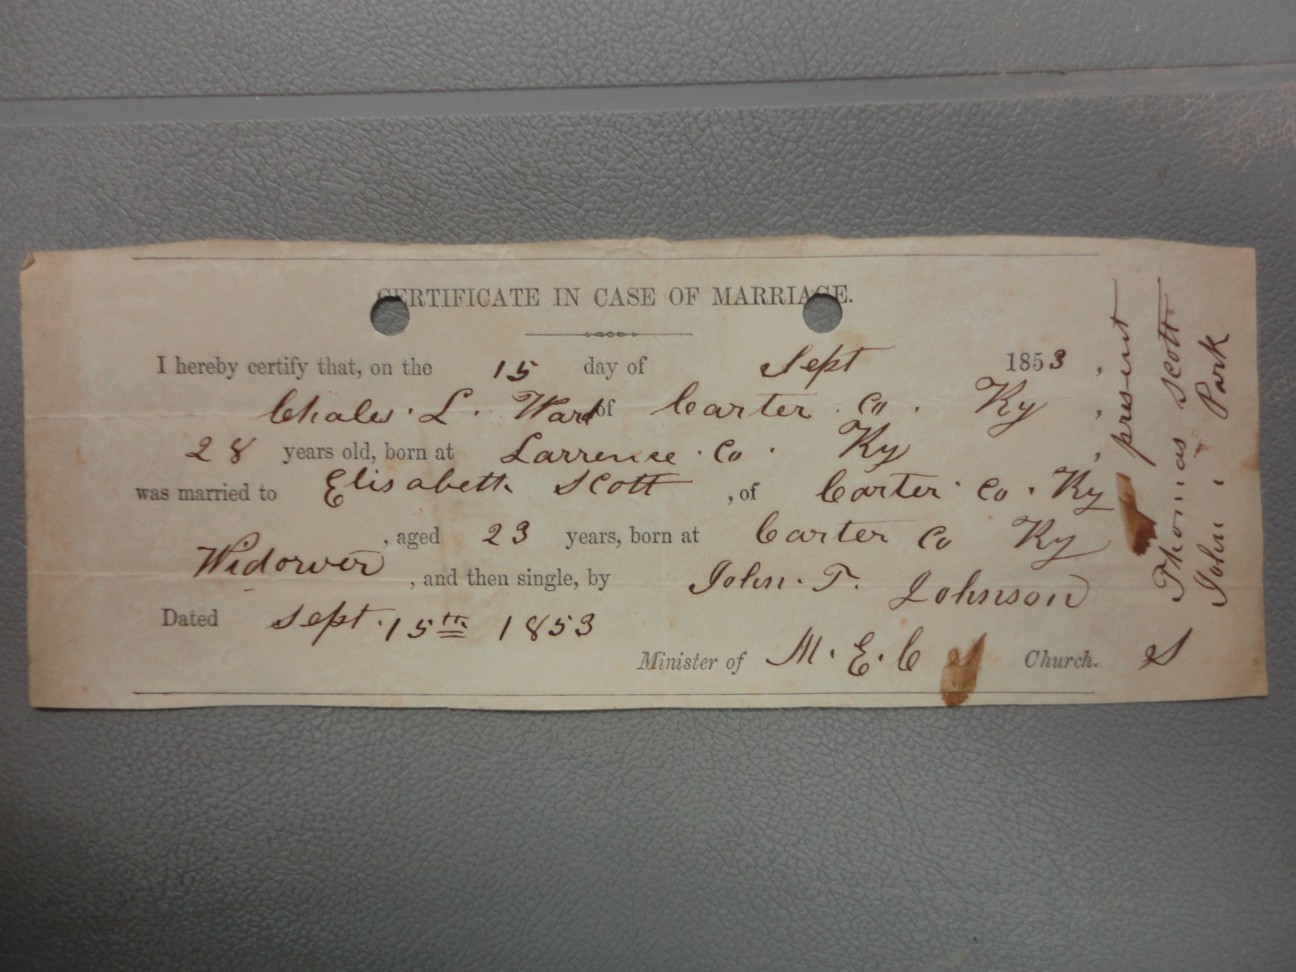 CERTIFICATE IN CASE OF MARRIAGE.
I hereby certify that, on the 15 day of Sept 1853,
Chales. L. Ward of Carter. Co. Ky,
28 years old, born at Larrence. Co. Ky,
was married to Elisabeth Scott, of Carter. Co. Ky
, aged 23 years, born at Carter Co Ky
Widower, and then single, by John. T. Johnson
Dated Sept. 15th 1853
Minister of M. E. C S Church.
present
Thomas Scott
John . Park
S